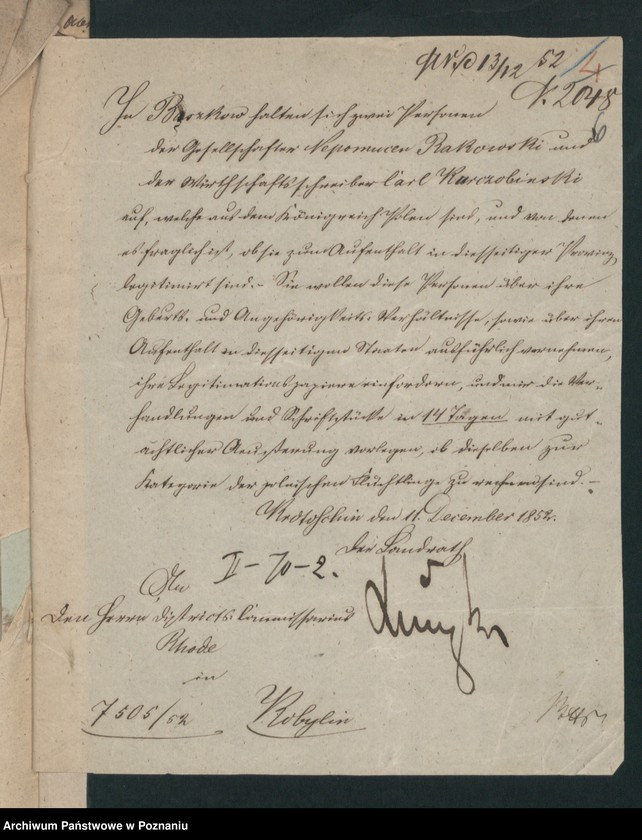 13/12 52
4
N. 2048
In Baszkow halten sich zwei Personen
der Gesellschafter Nepomucen Rakowski und
der Wirthschaftsschreiber Carl Kurczobinski
auf, welche aus dem Königreich Polen sind, und von denen
es fraglich ist, ob sie zum Aufenthalt in diesseitiger Provinz
legitimirt sind. – Sie wollen diese Personen über ihre
Geburts- und Angehörigkeits-Verhältnisse, sowie über ihren
Aufenthalt in diesseitigen Staaten ausführlich vernehmen,
ihre Legitimationspapiere einfordern, und mir die Ver-
handlungen und Schriftstücke in 14 Tagen mit gut-
ächtlicher Aeußerung vorlegen, ob dieselben zur
Kategorie der polnischen Flüchtlinge zu rechnen sind. –
Krotoschin den 11. December 1852.
Der Landrath
II – 70 – 2.
An
den Herrn Districts-Commissarius
Rhode
in
7505/52 Kobylin
Archiwum Państwowe w Poznaniu